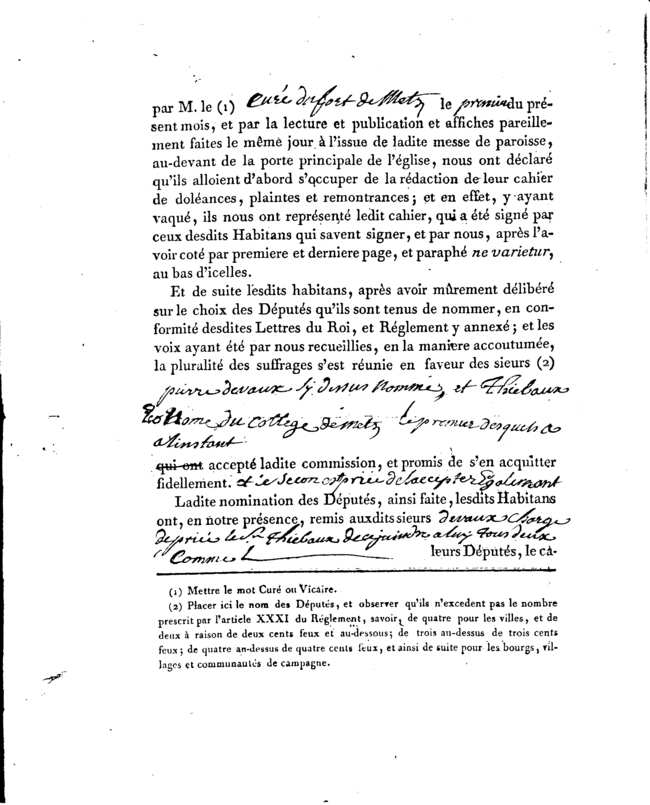 par M. le (1) Curé du fort de Metz le premier du pré-
sent mois, et par la lecture et publication et affiches pareille-
ment faites le même jour à l'issue de ladite messe de paroisse,
au-devant de la porte principale de l'église, nous ont déclaré
qu'ils alloient d'abord s'occuper de la rédaction de leur cahier
de doléances, plaintes et remontrances; et en effet, y ayant
vaqué, ils nous ont représenté ledit cahier, qui a été signé par
ceux desdits Habitans qui savent signer, et par nous, après l'a-
voir coté par premiere et derniere page, et paraphé ne varietur,
au bas d'icelles.
Et de suite lesdits habitans, après avoir mûrement délibéré
sur le choix des Députés qu'ils sont tenus de nommer, en con-
formité desdites Lettres du Roi, et Réglement y annexé; et les
voix ayant été par nous recueillies, en la maniere accoutumée,
la pluralité des suffrages s'est réunie en faveur des sieurs (2)
pierre devaux cy dessus nommé, et Thiebaux
Econome du college de metz le premier desquels a
a l'instant
qui ont accepté ladite commission, et promis de s'en acquitter
fidellement. et le second est prié de l'accepter Egalement
Ladite nomination des Députés, ainsi faite, lesdits Habitans
ont, en notre présence, remis auxdits sieurs devaux Chargé
de prier le Sr. Thiebaux de se joindre a luy tous deux
Comme leurs Députés, le ca-
(1) Mettre le mot Curé ou Vicaire.
(2) Placer ici le nom des Députés, et observer qu'ils n'excedent pas le nombre
prescrit par l'article XXXI du Réglement, savoir, de quatre pour les villes, et de
deux à raison de deux cents feux et au-dessous; de trois au-dessus de trois cents
feux; de quatre au-dessus de quatre cents feux, et ainsi de suite pour les bourgs, vil-
lages et communautés de campagne.